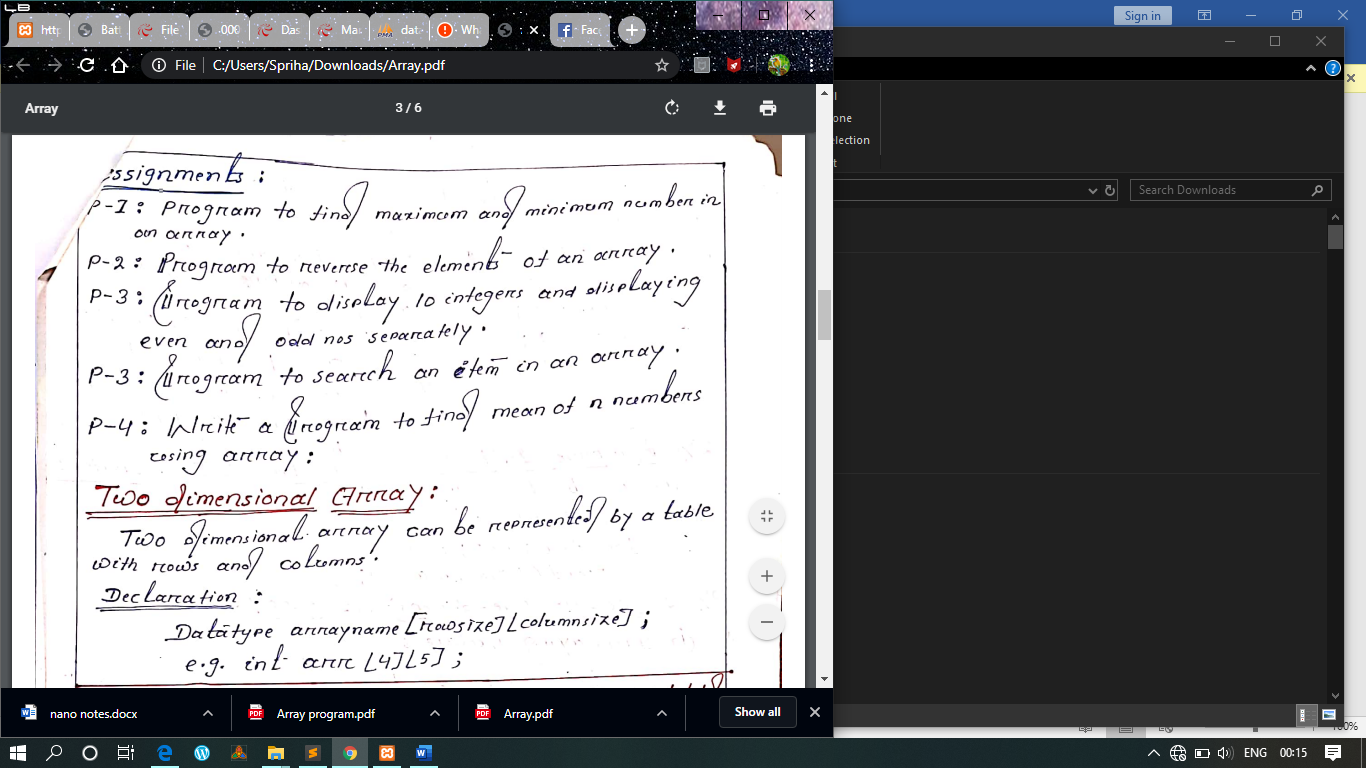 Sign in
http
Batt
File
.000
Das
Ma
dat
Wh
Fac
File C:/Users/Spriha/Downloads/Array.pdf
one
election
t
Array 3 / 6
Search Downloads
essignments :
P-1 : Program to find maximum and minimum number in
an array .
P-2 : Program to reverse the elements of an array .
P-3 : Program to display 10 integers and displaying
even and odd nos separately .
P-3 : Program to search an item in an array .
P-4 : Write a program to find mean of n numbers
using array :
Two dimensional Array :
Two dimensional array can be represented by a table
with rows and columns .
Declaration :
Datatype arrayname [rowsize][columnsize] ;
e.g. int arr [4][5] ;
nano notes.docx
Array program.pdf
Array.pdf
Show all
100%
ENG 00:15